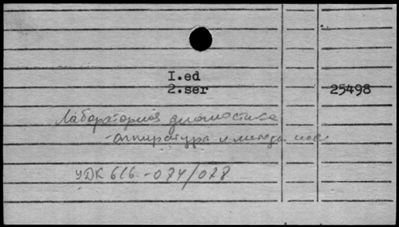 I.ed
2.ser 25498
Лабораторная диагностика
- аппаратура и методы
УДК 616-074/078